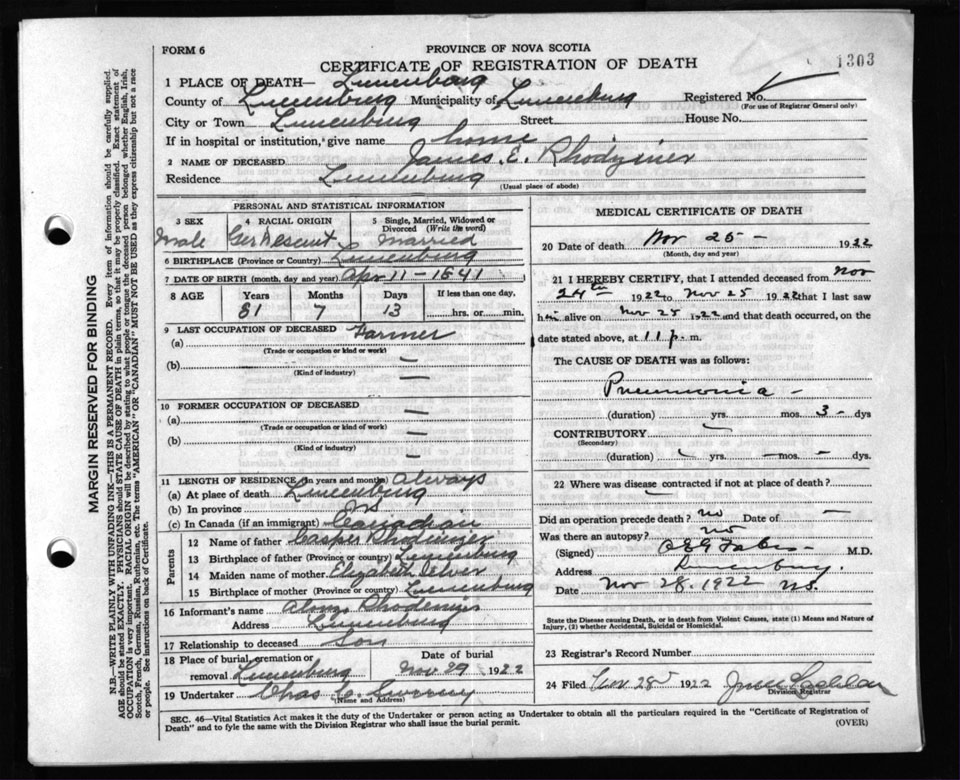 FORM 6
PROVINCE OF NOVA SCOTIA
CERTIFICATE OF REGISTRATION OF DEATH
1303
1 PLACE OF DEATH— Lunenburg
County of Lunenburg Municipality of Lunenburg Registered No.
(For use of Registrar General only)
City or Town Lunenburg Street House No.
If in hospital or institution, give name home
2 NAME OF DECEASED James. E. Rhodyiner
Residence Lunenburg
(Usual place of abode)
PERSONAL AND STATISTICAL INFORMATION
3 SEX 4 RACIAL ORIGIN 5 Single, Married, Widowed or Divorced (Write the word)
Male Ger Descent Married
6 BIRTHPLACE (Province or Country) Lunenburg
7 DATE OF BIRTH (month, day and year) Apr 11 - 1841
8 AGE Years Months Days If less than one day,
81 7 13 ....hrs. or....min.
9 LAST OCCUPATION OF DECEASED Farmer
(a)
(Trade or occupation or kind or work)
(b) —
(Kind of industry) —
10 FORMER OCCUPATION OF DECEASED —
(a) —
(Trade or occupation or kind of work)
(b) —
(Kind of industry) —
11 LENGTH OF RESIDENCE (In years and months) Always
(a) At place of death Lunenburg
(b) In province NS
(c) In Canada (if an immigrant) Canadian
Parents
12 Name of father Casper Rhodeniser
13 Birthplace of father (Province or country) Lunenburg
14 Maiden name of mother Elizabeth
15 Birthplace of mother (Province or country) Lunenburg
16 Informant's name Alonzo Rhodeniser
Address Lunenburg
17 Relationship to deceased Son
18 Place of burial, cremation or removal Lunenburg
Date of burial
Nov 29 1922
19 Undertaker Chas
(Name and Address)
MEDICAL CERTIFICATE OF DEATH
20 Date of death Nov 25 - 1922
(Month, day and year)
21 I HEREBY CERTIFY, that I attended deceased from Nov
24th 1922 to Nov 25 1922 that I last saw
him alive on Nov 25 1922 and that death occurred, on
date stated above, at 11 p. m.
The CAUSE OF DEATH was as follows:
Pneumonia -
(duration) yrs. mos. 3 - dys
CONTRIBUTORY
(Secondary)
(duration) yrs. — mos. — dys.
22 Where was disease contracted if not at place of death?
Did an operation precede death? no Date of —
Was there an autopsy? no
(Signed) M.D.
Address Lunenburg.
Date Nov 28. 1922 N.S.
State the Disease causing Death, or in death from Violent Causes, state (1) Means and Nature of Injury, (2) whether Accidental, Suicidal or Homicidal.
23 Registrar's Record Number
24 Filed Nov 28 1922
Division Registrar
SEC. 46—Vital Statistics Act makes it the duty of the Undertaker or person acting as Undertaker to obtain all the particulars required in the "Certificate of Registration of
Death" and to fyle the same with the Division Registrar who shall issue the burial permit. (OVER)
MARGIN RESERVED FOR BINDING
N.B.—WRITE PLAINLY WITH UNFADING INK—THIS IS A PERMANENT RECORD. Every item of information should be carefully supplied.
AGE should be stated EXACTLY. PHYSICIANS should STATE CAUSE OF DEATH in plain terms, so that it may be properly classified. Exact statement of
OCCUPATION is very important. RACIAL ORIGIN will be described by stating to what people or tongue the deceased person belonged whether English, Irish,
Scotch, French, German, Russian, Ruthenian, etc. The terms "AMERICAN" OR "CANADIAN" MUST NOT BE USED as they express citizenship but not a race
or people. See instructions on back of Certificate.